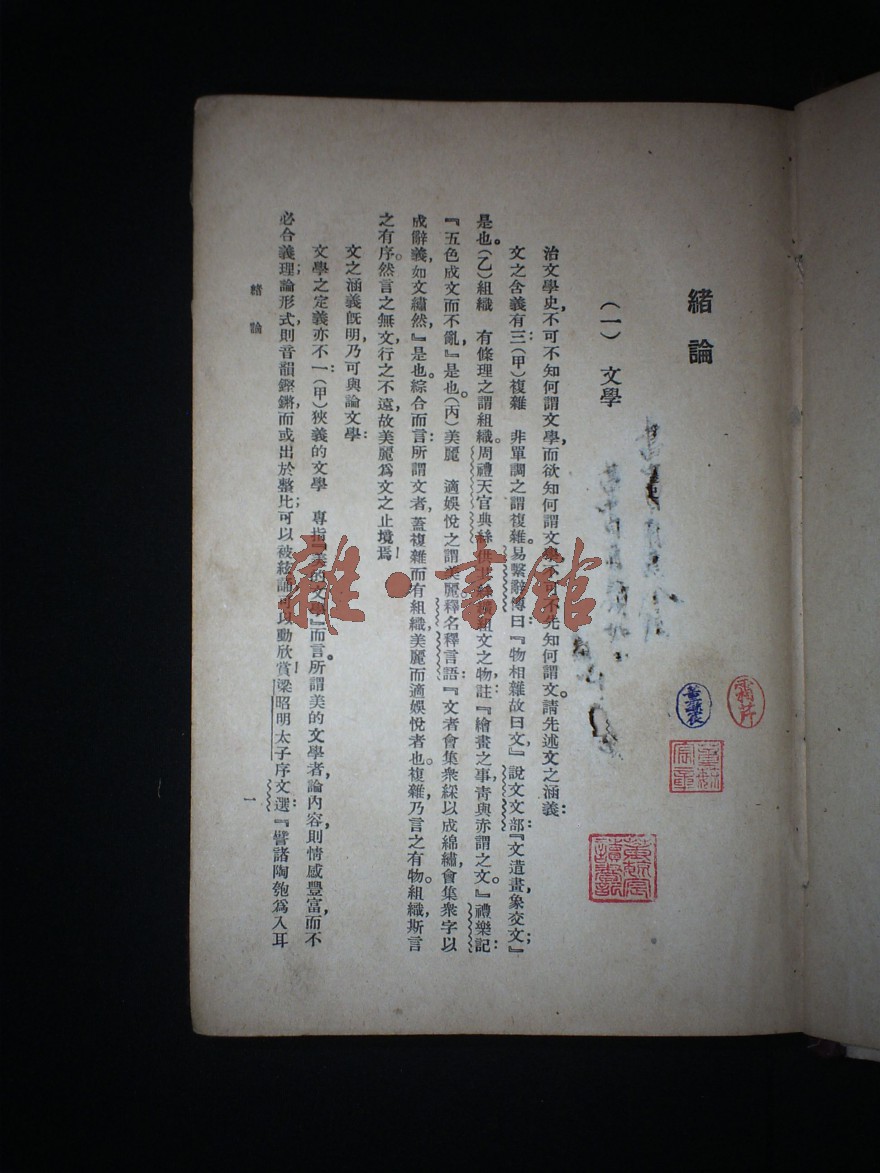 緒論
(一) 文學
治文學史,不可不知何謂文學,而欲知何謂文學,不可不先知何謂文。請先述文之涵義:
文之含義有三:(甲)複雜 非單調之謂複雜。易繫辭傳曰:『物相雜故曰文』說文文部:『文遣畫,象交文』;
是也。(乙)組織 有條理之謂組織。周禮天官典絲:供其絲纊組文之物,註:『繪畫之事,青與赤謂之文。』禮樂記:
『五色成文而不亂,』是也。(丙)美麗 適娛悅之謂美麗。釋名釋言語:『文者會集衆綵以成綿繡,會集衆字以
成辭義,如文繡然』是也。綜合而言:所謂文者,蓋複雜而有組織,美麗而適娛悅者也。複雜,乃言之有物。組織,斯言
之有序。然言之無文,行之不遠,故美麗爲文之止境焉。
文之涵義旣明,乃可與論文學:
文學之定義亦不一:(甲)狹義的文學 專指『美的文學』而言。所謂美的文學者,論內容,則情感豐富,而不
必合義理;論形式,則音韻鏗鏘,而或出於整比;可以被絃誦,可以動欣賞。梁昭明太子序文選:『譬諸陶匏爲入耳
緒論
一
雜·書館